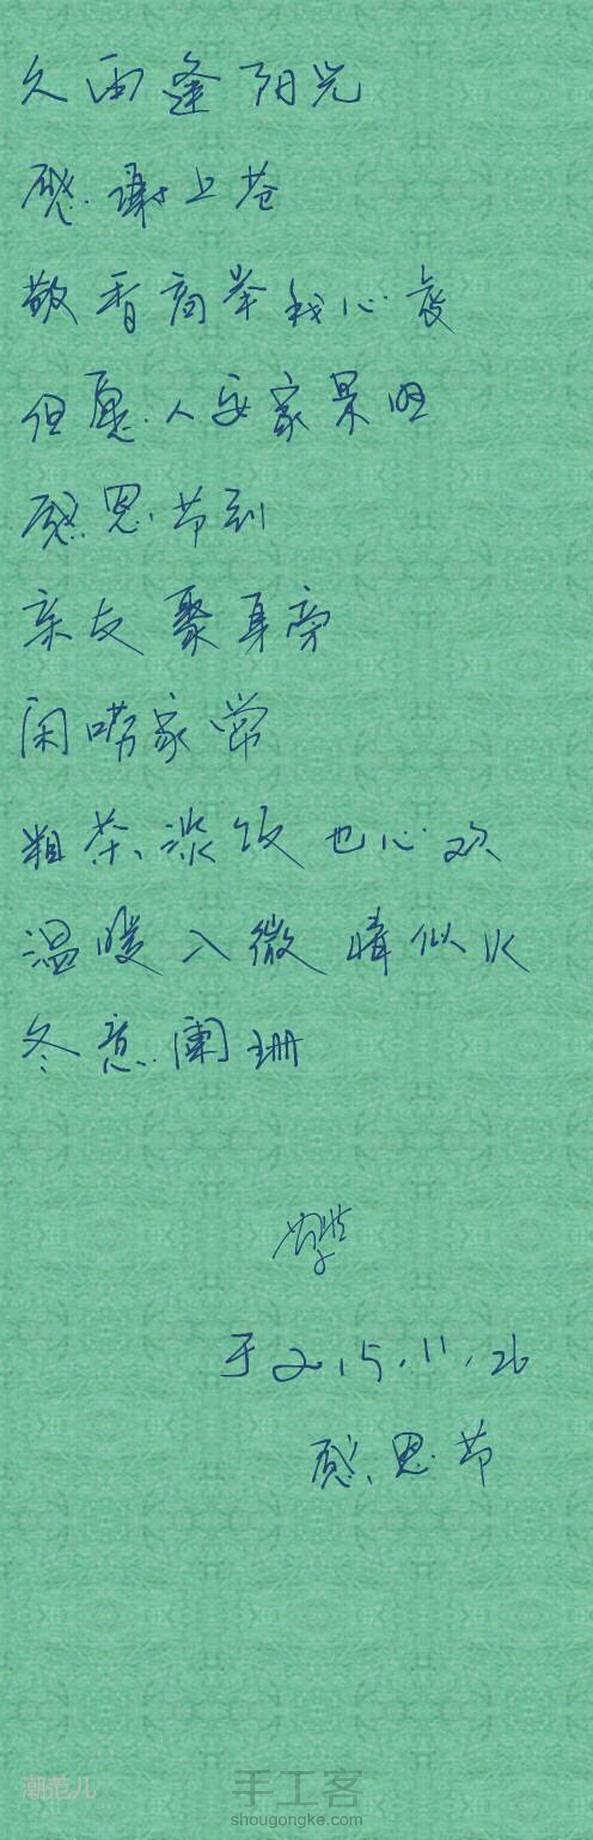 久雨逢阳光
感谢上苍
敬香高举我心衷
但愿人安家景旺
感恩节到
亲友聚身旁
闲唠家常
粗茶淡饭也心欢
温暖入微情似火
冬意阑珊
于2015.11.26
感恩节
潮范儿
手工客
shougongke.com